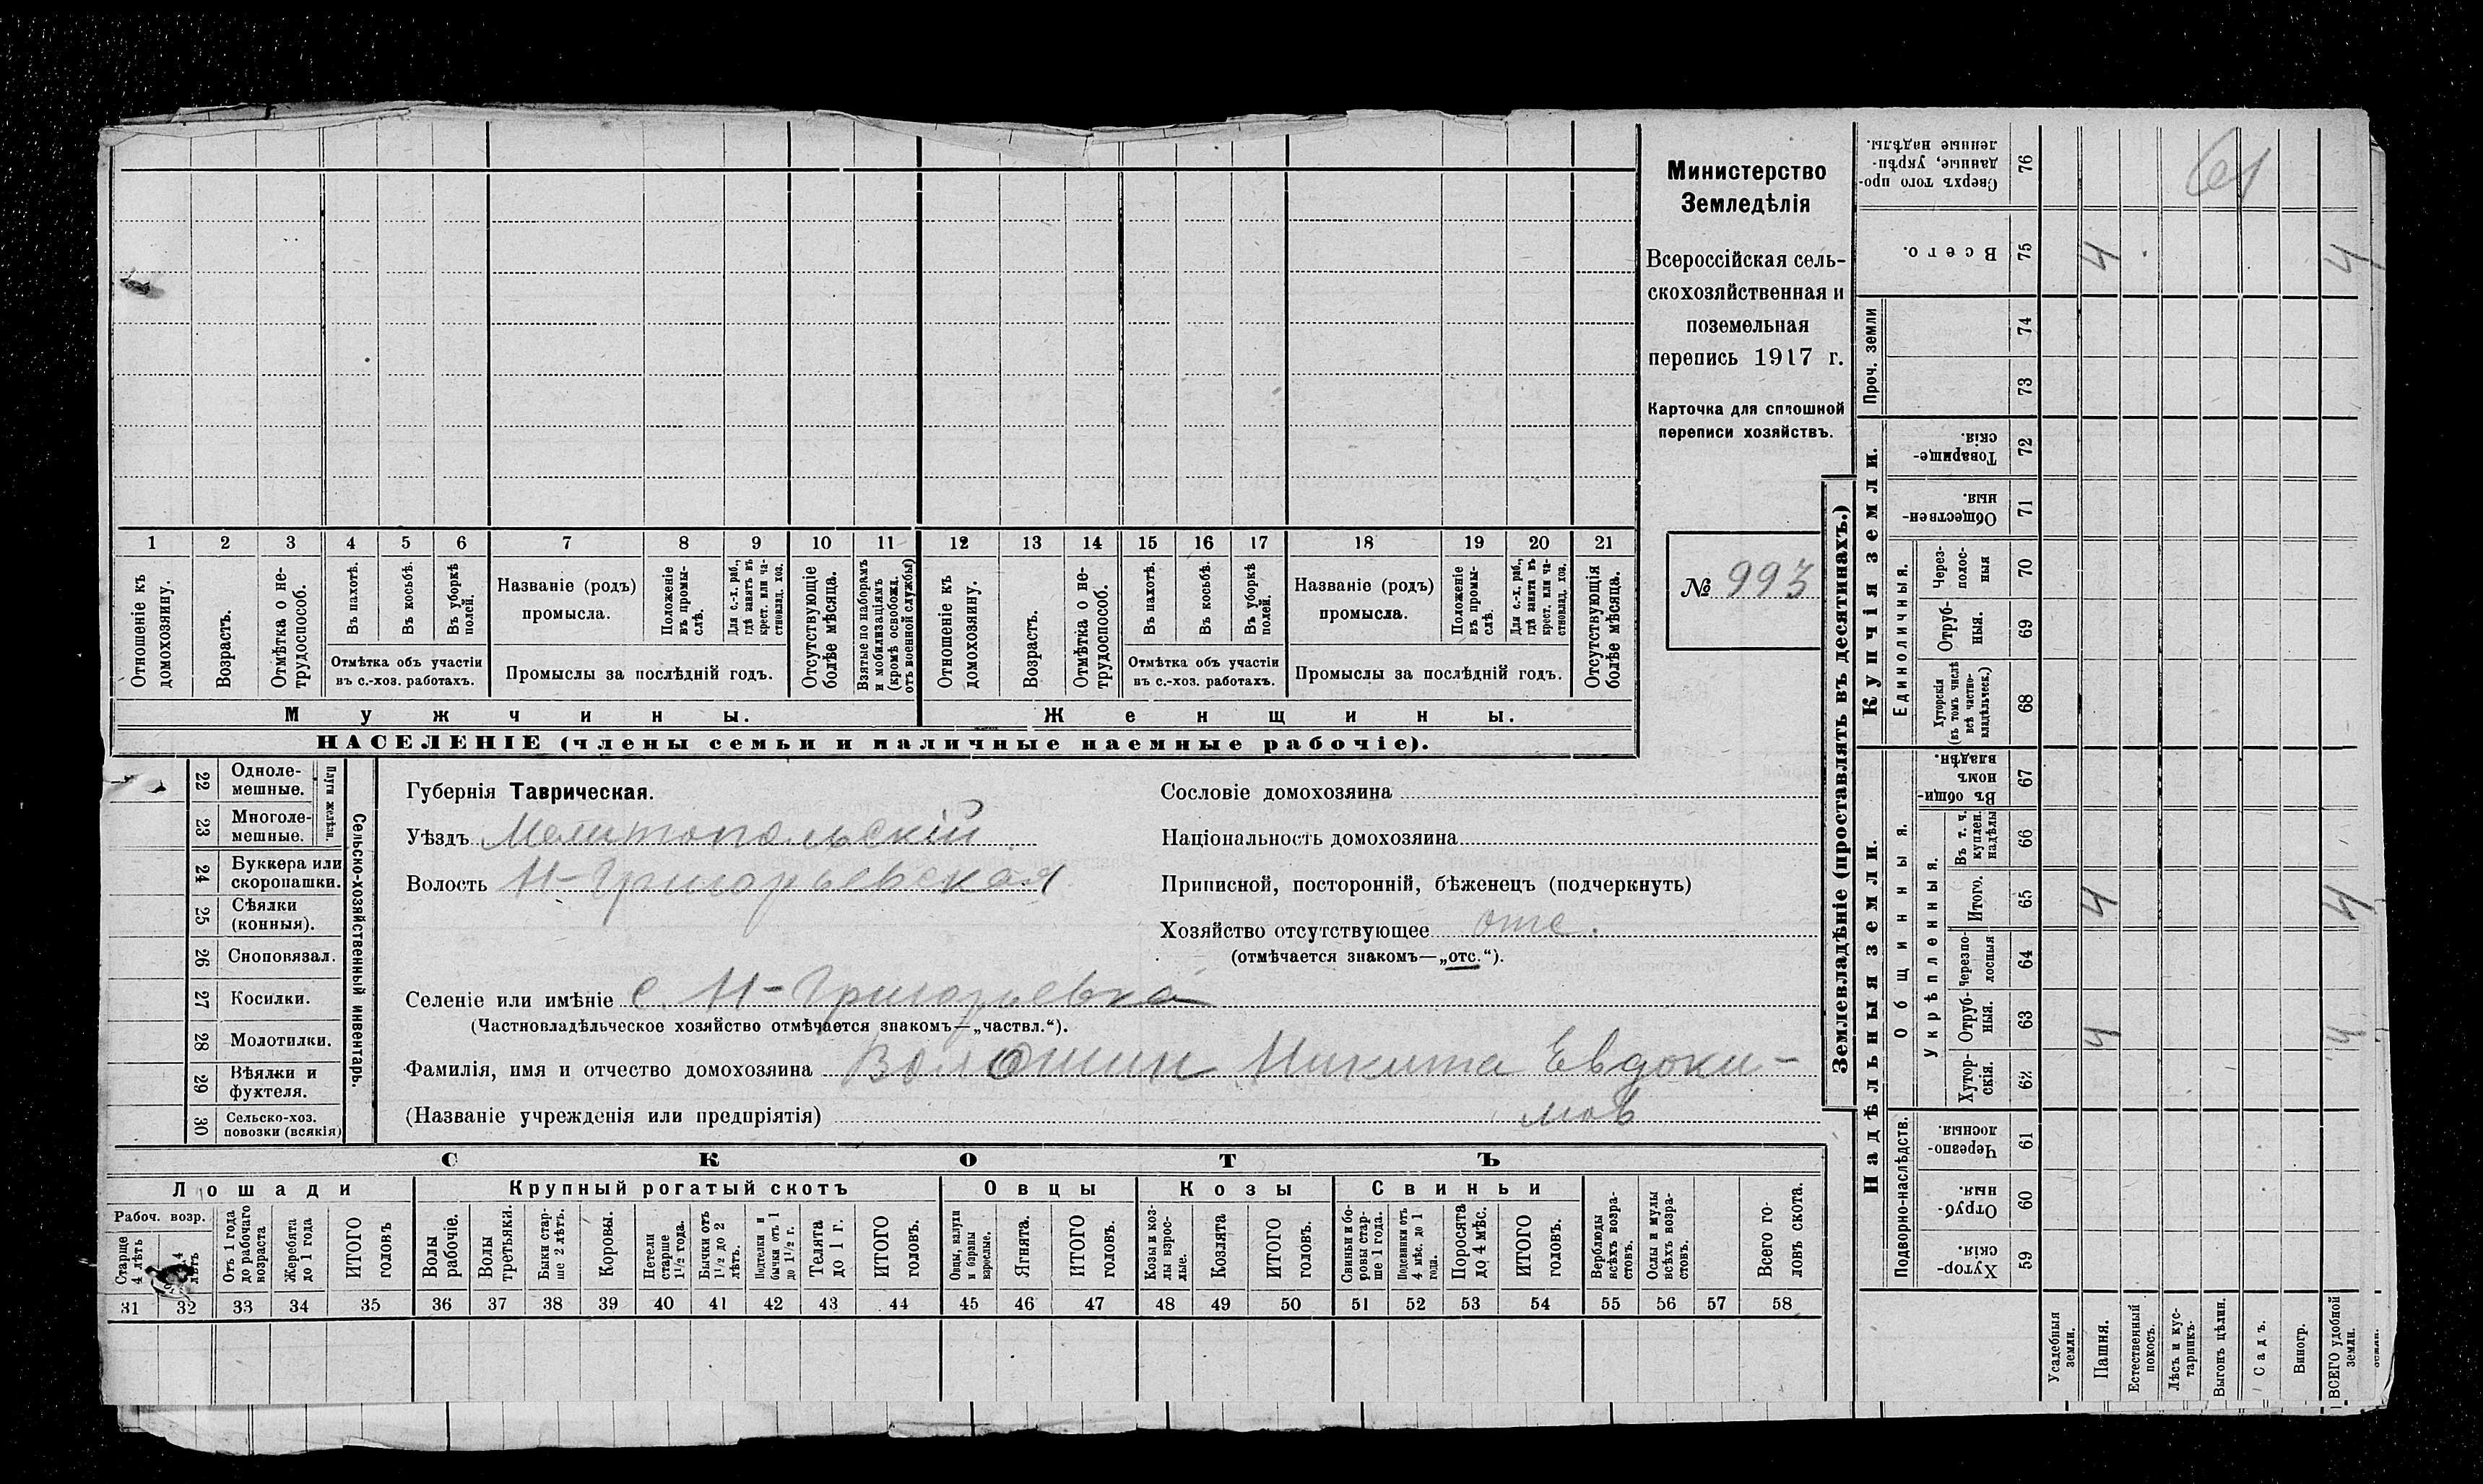 Министерство
Земледѣлія
Всероссійская сель-
скохозяйственная и
поземельная
перепись 1917 г.
Карточка для сплошной
переписи хозяйствъ.
№ 993
1 2 3 4 5 6 7 8 9 10 11 12 13 14 15 16 17 18 19 20 21
Отношеніе къ домохозяину.
Возрастъ.
Отмѣтка о не-трудоспособ.
Въ пахотѣ.
Въ косьбѣ.
Въ уборкѣ полей.
Отмѣтка объ участіи
въ с.-хоз. работахъ.
Названіе (родъ)
промысла.
Положеніе въ промы-слѣ.
Для с.-х. раб., гдѣ занятъ въ крест. или ча-стновлад. хоз.
Промыслы за послѣдній годъ.
Отсутствующіе болѣе мѣсяца.
Взятые по наборамъ и мобилизаціямъ (кромѣ освобожд. отъ военной службы)
Отношеніе къ домохозяину.
Возрастъ.
Отмѣтка о не-трудоспособ.
Въ пахотѣ.
Въ косьбѣ.
Въ уборкѣ полей.
Отмѣтка объ участіи
въ с.-хоз. работахъ.
Названіе (родъ)
промысла.
Положеніе въ промы-слѣ.
Для с.-х. раб., гдѣ занята въ крест. или ча-стновлад. хоз.
Промыслы за послѣдній годъ.
Отсутствующія болѣе мѣсяца.
Мужчины.
Женщины.
НАСЕЛЕНІЕ (члены семьи и наличные наемные рабочіе).
22 Одноле-мешные.
23 Многоле-мешные.
Плуги желѣзн.
24 Буккера или скоропашки.
25 Сѣялки (конныя).
26 Сноповязал.
27 Косилки.
28 Молотилки.
29 Вѣялки и фухтеля.
30 Сельско-хоз. повозки (всякія)
Сельско-хозяйственный инвентарь.
Губернія Таврическая.
Уѣздъ Мелитопольскій
Волость Н-Григорьевская
Сословіе домохозяина
Національность домохозяина
Приписной, посторонній, бѣженецъ (подчеркнуть)
Хозяйство отсутствующее отс.
(отмѣчается знакомъ—„отс.“).
Селеніе или имѣніе с. Н-Григорьевка
(Частновладѣльческое хозяйство отмѣчается знакомъ—„частвл.“).
Фамилія, имя и отчество домохозяина Волошин Никита Евдоки-
(Названіе учрежденія или предпріятія) мов
СКОТЪ
Лошади
Крупный рогатый скотъ
Овцы
Козы
Свиньи
Рабоч. возр.
Старше 4 лѣтъ
4 лѣтъ
Отъ 1 года до рабочаго возраста
Жеребята до 1 года
ИТОГО головъ
Волы рабочіе.
Волы третьяки.
Быки стар-ше 2 лѣтъ.
Коровы.
Нетели старше 1½ года.
Бычки отъ 1½ до 2 лѣтъ.
Подтелки и бычки отъ 1 до 1½ г.
Телята до 1 г.
ИТОГО головъ.
Овцы, валухи и бараны взрослые.
Ягнята.
ИТОГО головъ.
Козы и коз-лы взрос-лые.
Козлята
ИТОГО головъ.
Свиньи и бо-ровы стар-ше 1 года.
Подсвинки отъ 4 мѣс. до 1 года.
Поросята до 4 мѣс.
ИТОГО головъ.
Верблюды всѣхъ возра-стовъ.
Ослы и мулы всѣхъ возра-стовъ.
Всего го-ловъ скота.
31 32 33 34 35 36 37 38 39 40 41 42 43 44 45 46 47 48 49 50 51 52 53 54 55 56 57 58
Землевладѣніе (проставлять въ десятинахъ.)
61
76 Сверхъ того про-данные, укрѣп-ленные надѣлы.
75 Всего. 4 4
Проч. земли
74
73
Купчія земли.
72 Товарище-скія.
71 Обществен-ныя.
Единоличныя.
70 Через-полос-ныя
69 Отруб-ныя.
68 Хуторскія (въ томъ числѣ всѣ частно-владѣльческ.)
Надѣльныя земли.
Общинныя.
67 Въ общи-номъ владѣн.
Укрѣпленныя.
66 Въ т. ч. куплен. надѣлы
65 Итого. 4 4
64 Черезпо-лосныя
63 Отруб-ныя. 4 4
62 Хутор-скія.
Подворно-наслѣдств.
61 Черезпо-лосныя.
60 Отруб-ныя.
59 Хутор-скія.
Усадебныя земли.
Пашня.
Естественный покосъ.
Лѣсъ и кус-тарникъ.
Выгонъ цѣлин.
Садъ.
Виногр.
ВСЕГО удобной земли.